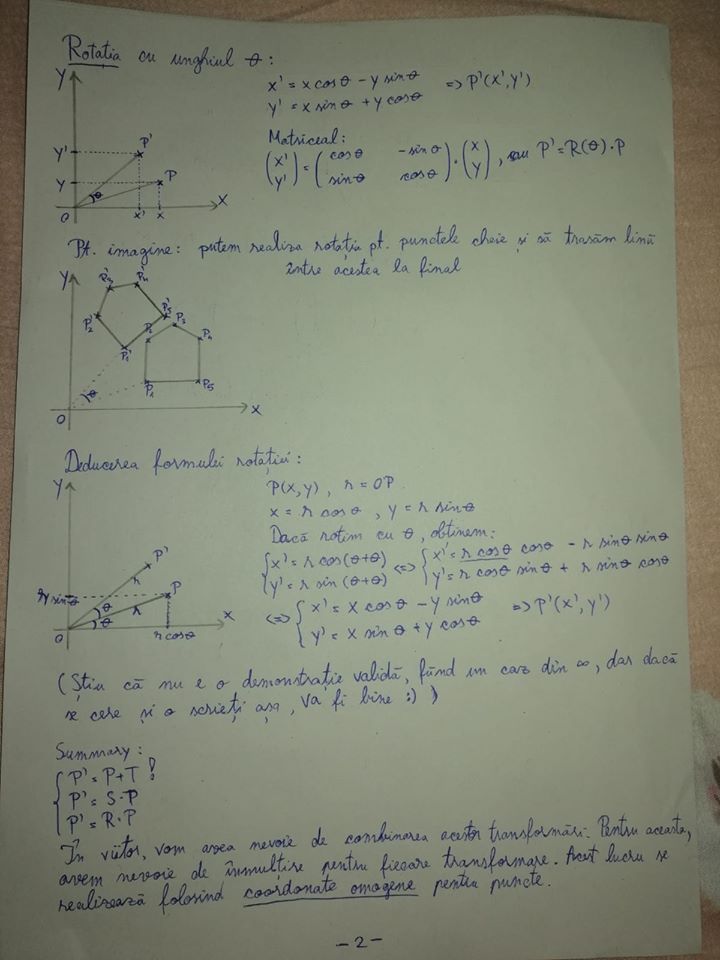 Rotația cu unghiul θ:
x' = x cosθ - y sinθ => P'(x',y')
y' = x sinθ + y cosθ
Y
y'
y
P'
P
θ
O
x'
x
X
Matriceal:
(x') = (cosθ -sinθ) · (x), sau P' = R(θ)·P
(y') (sinθ cosθ) (y)
Pt. imagine: putem realiza rotația pt. punctele cheie și să trasăm linii
între acestea la final
Y
P'3
P'4
P'2
P'5
P'1
P2
P3
P4
P1
P5
θ
O
X
Deducerea formulei rotației:
P(x,y), r = OP
x = r cosθ, y = r sinθ
Dacă rotim cu θ, obținem:
{x' = r cos(θ+θ) <=> {x' = r cosθ cosθ - r sinθ sinθ
{y' = r sin(θ+θ) {y' = r cosθ sinθ + r sinθ cosθ
<=> {x' = x cosθ - y sinθ => P'(x',y')
{y' = x sinθ + y cosθ
Y
P'
r
P
r
sinθ
θ
θ
O
r cosθ
X
(Știu că nu e o demonstrație validă, fiind un caz din ∞, dar dacă
se cere și o scrieți așa, va fi bine :) )
Summary:
{P' = P+T !
{P' = S·P
{P' = R·P
În viitor, vom avea nevoie de combinarea acestor transformări. Pentru aceasta,
avem nevoie de înmulțire pentru fiecare transformare. Acest lucru se
realizează folosind coordonate omogene pentru puncte.
- 2 -